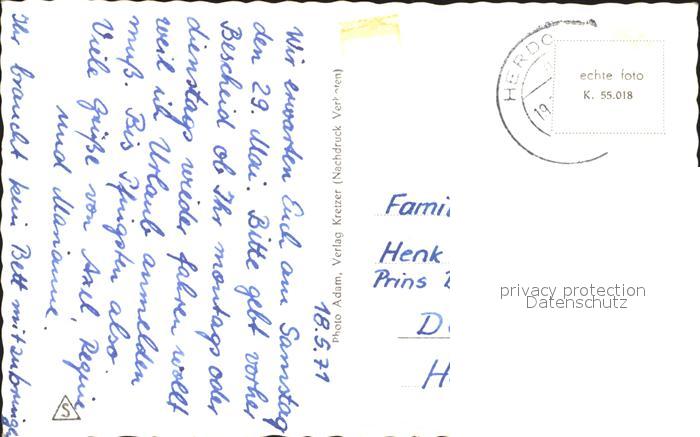 18.5.71
Wir erwarten Euch am Samstag
den 29. Mai. Bitte gebt vorher
Bescheid ob Ihr montags oder
dienstags wieder fahren wollt
weil ich Urlaub anmelden
muß. Bis Pfingsten also
Viele Grüße von Axel, Regine
und Marianne.
Ihr braucht kein Bett mitzubringen
Photo Adam, Verlag Kretzer (Nachdruck Verboten)
HERDO
19.
echte foto
K. 55.018
Famil
Henk
Prins
D
H
privacy protection
Datenschutz
S